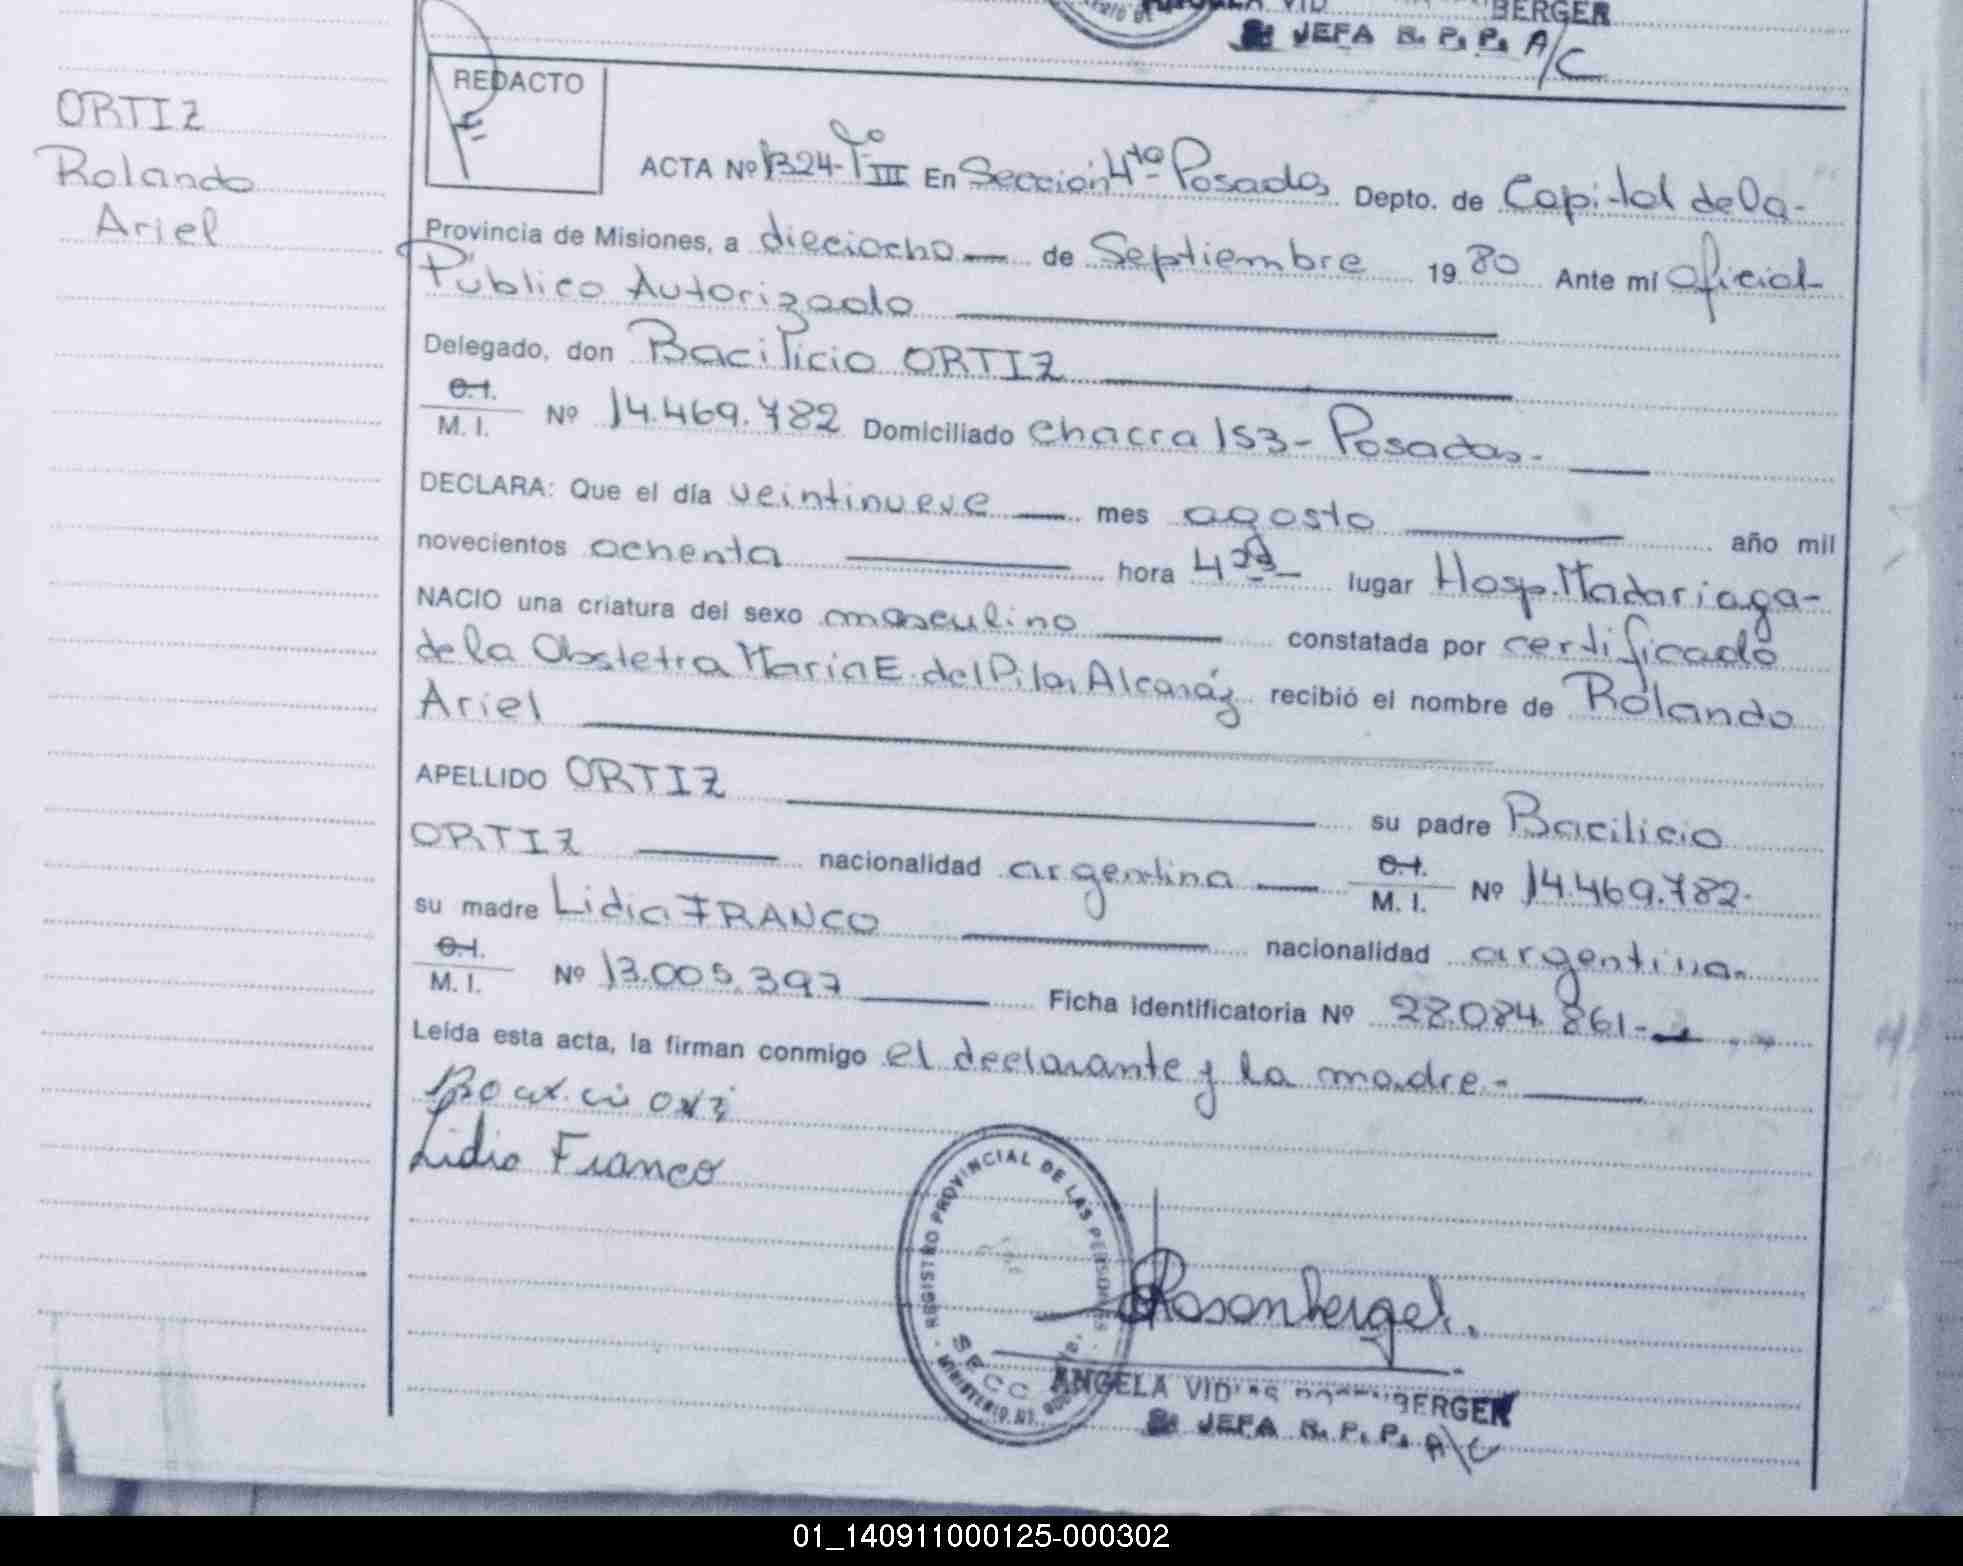 BERGER
JEFA R. P. P. A/C
REDACTO
ORTIZ
Rolando
Ariel
ACTA Nº 1324-Tº III En Sección 4ta Posadas Depto. de Capital de la-
Provincia de Misiones, a dieciocho — de Septiembre 19 80 Ante mí Oficial
Público Autorizado
Delegado, don Bacilicio ORTIZ
C.I.
M. I. Nº 14.469.782 Domiciliado chacra 153- Posadas.-
DECLARA: Que el día veintinueve — mes agosto año mil
novecientos ochenta hora 4 lugar Hosp. Madariaga-
NACIO una criatura del sexo masculino constatada por certificado
de la Obstetra María E. del Pilar Alcaráz recibió el nombre de Rolando
Ariel
APELLIDO ORTIZ su padre Bacilicio
ORTIZ nacionalidad argentina — C.I. M. I. Nº 14.469.782-
su madre Lidia FRANCO nacionalidad argentina.
C.I.
M. I. Nº 13.005.397 Ficha identificatoria Nº 28.084.861-
Leída esta acta, la firman conmigo el declarante y la madre.-
Lidia Franco
REGISTRO PROVINCIAL DE LAS PERSONAS
SECC. 
MINISTERIO DE
Rosenberger.
ANGELA VID BERGER
JEFA R. P. P. A/C
01_140911000125-000302